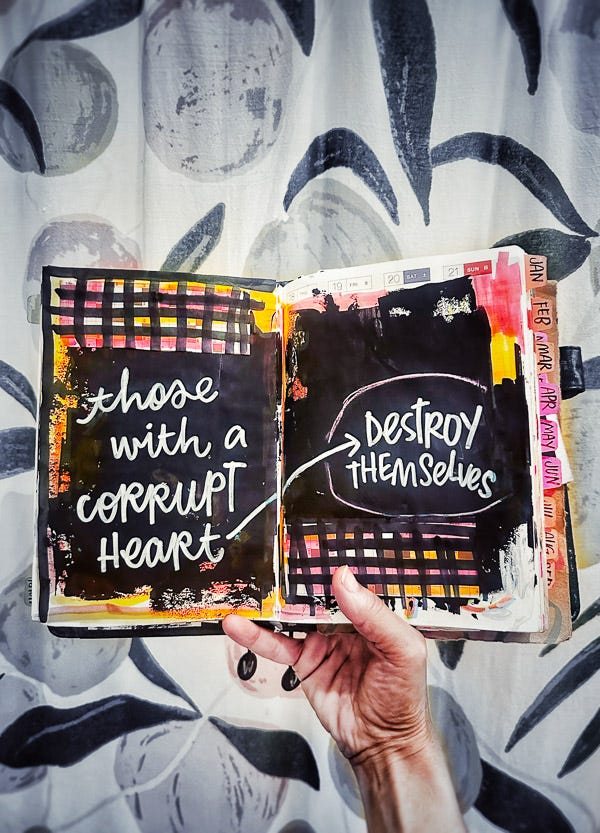 those
with a
corrupt
Heart
19 FRI
20 SAT
21 SUN
Destroy
Themselves
JAN
FEB
MAR
APR
MAY
JUN